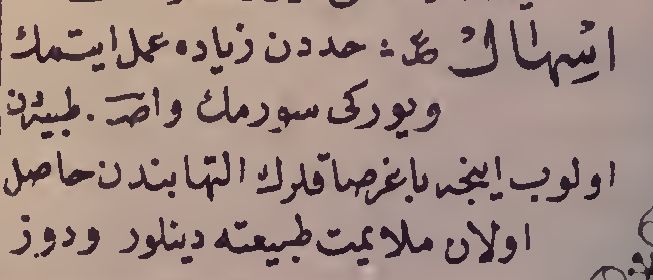 اسهال ع: حددن زیاده عمل ایتمك
ویوركی سورمك واصـ .
اولوب اینجه باغرصاقلرك التهابندن حاصل
اولان ملایمت طبیعته دینلور ودوز